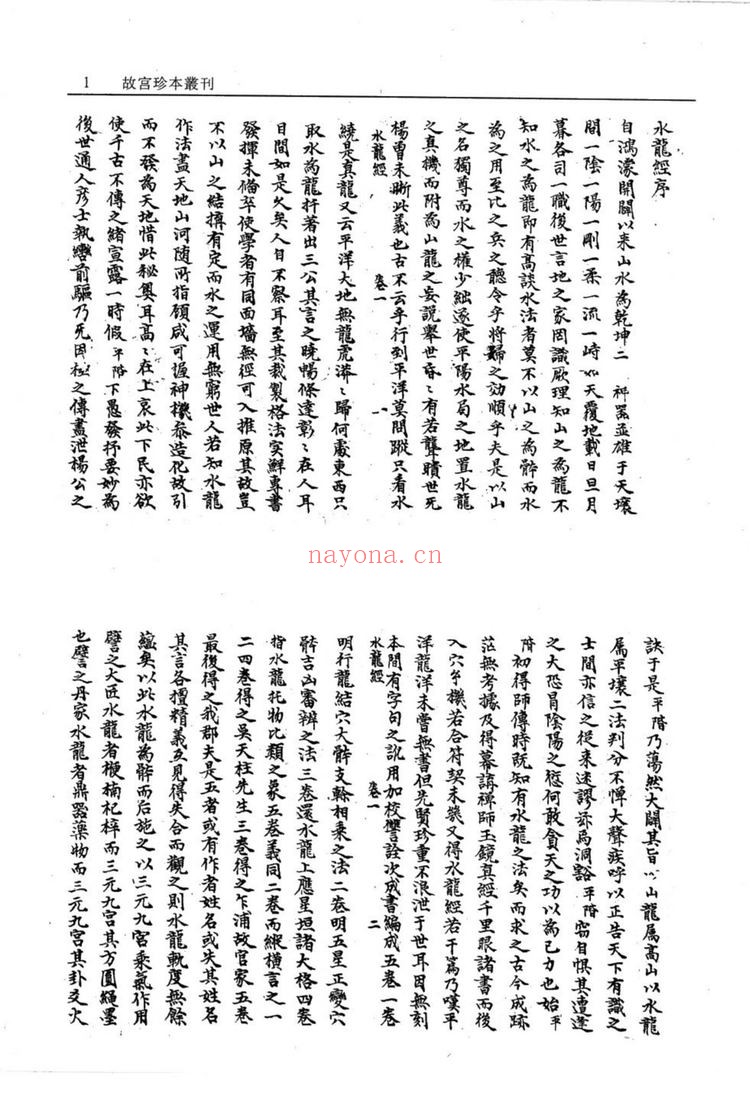 1 故宮珍本叢刊
水龍經序
自鴻濛開闢以來山水為乾坤二 神器並雄于天壤
間一陰一陽一剛一柔一流一峙如天覆地載日旦月
暮各司一職後世言地之家罔識厥理知山之為龍不
知水之為龍即有高談水法者莫不以山之為體而水
為之用至比之兵之聽令乎將婦之効順乎夫是以山
之名獨尊而水之權少絀遂使平陽水局之地置水龍
之真機而附為山龍之妄說舉世昏々有若聾聵世无
楊曾未晰此義也古不云乎行到平洋莫問蹤只看水
水龍經 卷一 一
繞是真龍又云平洋大地無龍虎漭々歸何處東西只
取水為龍扦著出三公其言之曉暢條達彰々在人耳
目間如是久矣人自不察耳至其裁製格法实鮮專書
發揮未偹卒使學者有同面墻無徑可入推原其故豈
不以山之結搆有定而水之運用無窮世人若知水龍
作法盡天地山河随所指顧咸可握神機叅造化故引
而不發為天地惜此秘奧耳高々在上哀此下民亦欲
使千古不傳之緒宣露一時假平階下愚發抒要妙為
後世通人彦士執轡前驅乃无因極之傳盡泄楊公之
訣于是平階乃蕩然大闢其旨以山龍属高山以水龍
属平壤二法判分不憚大聲疾呼以正告天下有識之
士間亦信之從来迷謬涣焉洞豁平階窃自惧其遭逢
之大恐冐陰陽之愆何敢貪天之功以為己力也始平
階初得師傳時既知有水龍之法矣而求之古今成跡
茫無考據及得幕講禪師玉鏡真經千里眼諸書而後
入穴午機若合符契未幾又得水龍經若干篇乃嘆平
洋龍洋未嘗無書但先賢珍重不浪泄于世耳因無刻
本間有字句之訛用加校讐詮次成書編成五卷一卷
水龍經 卷一 二
明行龍結穴大體支幹相乗之法二卷明五星正變穴
體吉凶審辨之法三卷還水龍上應星垣諸大格四卷
指水龍托物比類之象五卷義同二卷而縱横言之一
二四卷得之吳天柱先生三卷得之乍浦故官家五卷
最後得之我郡夫是五者或有作者姓名或失其姓名
其言各擅精義互見得失合而觀之則水龍軌度無餘
藴矣以此水龍為體而后施之以三元九宮乗氣作用
譬之大匠水龍者楩楠杞梓而三元九宮其方圓繩墨
也譬之丹家水龍者鼎器藥物而三元九宮其卦爻火
nayona.cn